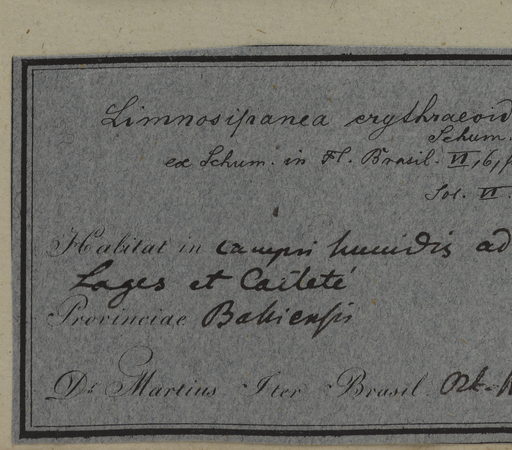 Limnosipanea erythraeoid
Schum.
ex Schum. in Fl. Brasil. VI, 6, p
Sol. VI.
Habitat in campis humidis ad
Lages et Caiteté
Provinciae Bahiensis
Dr Martius Iter Brasil. Okt.